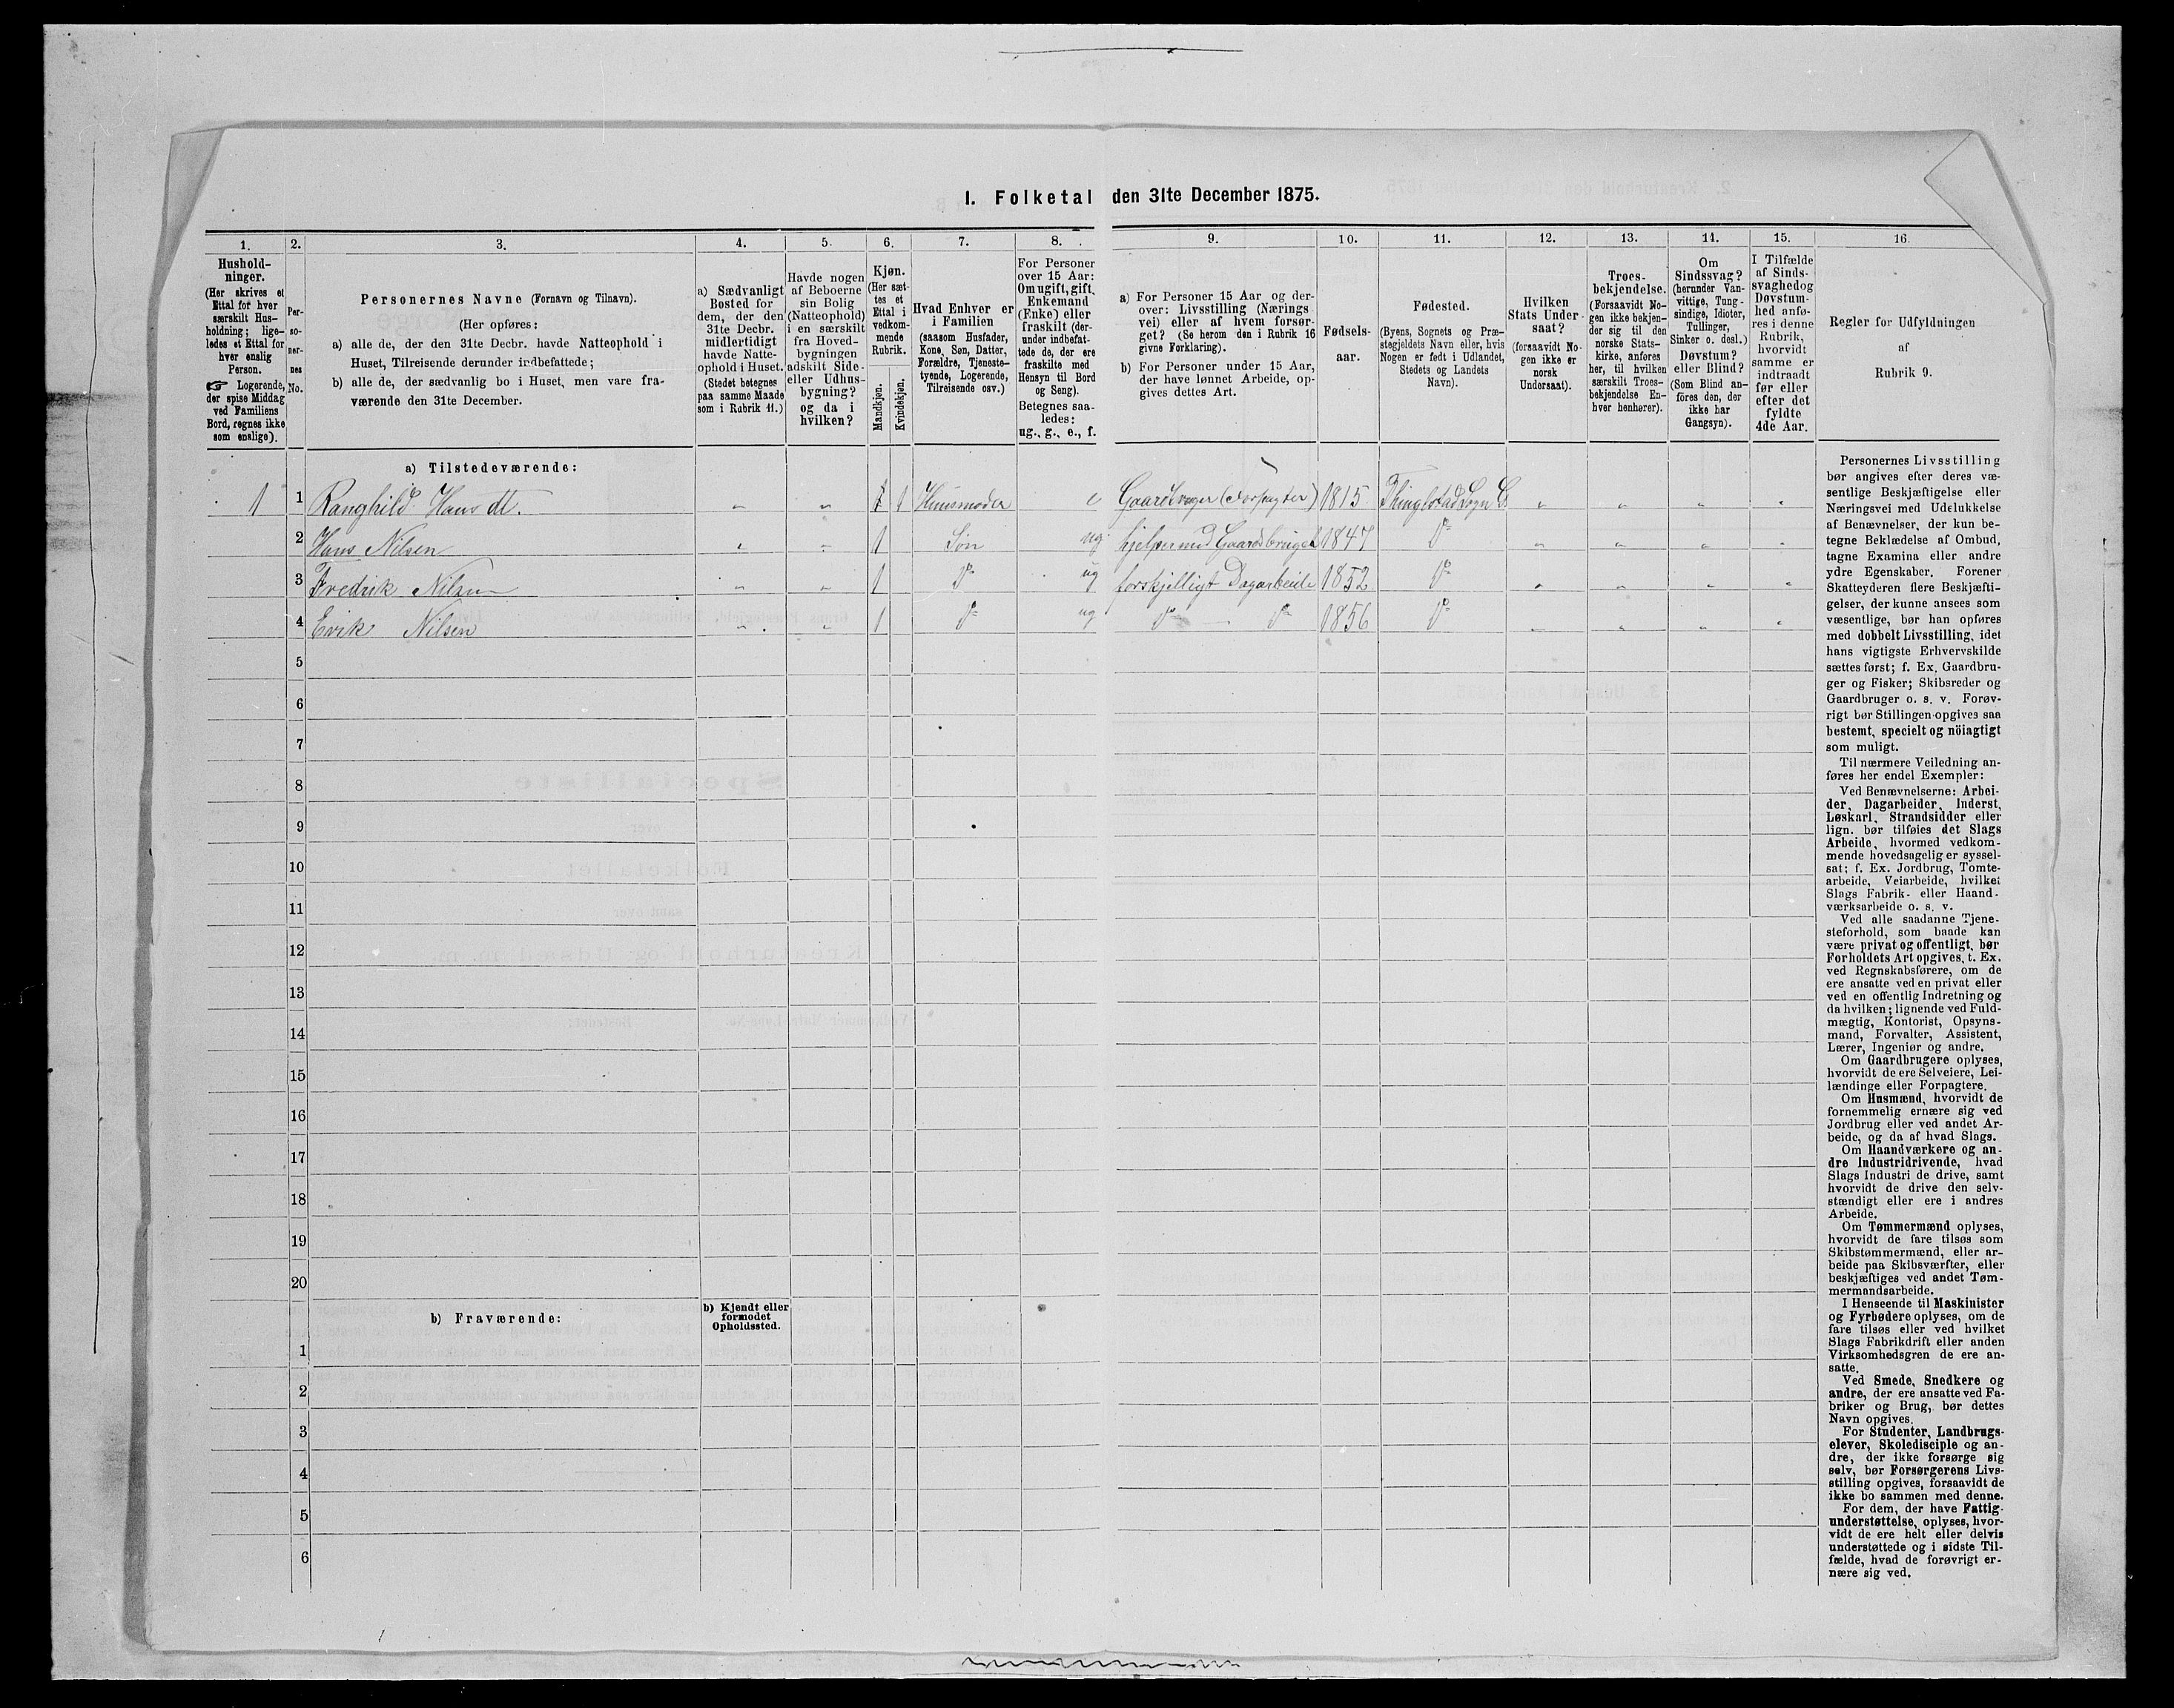 I. Folketal den 31te December 1875.
1. 2. 3. 4. 5. 6. 7. 8. 9. 10. 11. 12. 13. 14. 15. 16.
Hushold-
ninger.
(Her skrives et
Ettal for hver
særskilt Hus-
holdning; lige-
ledes et Ettal for
hver enslig
Person.
☞ Logerende,
der spise Middag
ved Familiens
Bord, regnes ikke
som enslige).
Per-
so-
ner-
nes
No.
Personernes Navne (Fornavn og Tilnavn).
(Her opføres:
a) alle de, der den 31te Decbr. havde Natteophold i
Huset, Tilreisende derunder indbefattede;
b) alle de, der sædvanlig bo i Huset, men vare fra-
værende den 31te December.
a) Sædvanligt
Bosted for
dem, der den
31te Decbr.
midlertidigt
havde Natte-
ophold i Huset.
(Stedet betegnes
paa samme Maade
som i Rubrik 11.)
Havde nogen
af Beboerne
sin Bolig
(Natteophold)
i en særskilt
fra Hoved-
bygningen
adskilt Side-
eller Udhus-
bygning?
og da i
hvilken?
Kjøn.
(Her sæt-
tes et
Ettal i
vedkom-
mende
Rubrik.
Mandkjøn.
Kvindekjøn.
Hvad Enhver er
i Familien
(saasom Husfader,
Kone, Søn, Datter,
Forældre, Tjeneste-
tyende, Logerende,
Tilreisende osv.)
For Personer
over 15 Aar:
Om ugift, gift,
Enkemand
(Enke) eller
fraskilt (der-
under indbefat-
tede de, der ere
fraskilte med
Hensyn til Bord
og Seng).
Betegnes saa-
ledes:
ug., g., e., f.
a) For Personer 15 Aar og der-
over: Livsstilling (Nærings-
vei) eller af hvem forsør-
get? (Se herom den i Rubrik 16
givne Forklaring).
b) For Personer under 15 Aar,
der have lønnet Arbeide, op-
gives dettes Art.
Fødsels-
aar.
Fødested.
(Byens, Sognets og Præ-
stegjeldets Navn eller, hvis
Nogen er født i Udlandet,
Stedets og Landets
Navn).
Hvilken
Stats Under-
saat?
(forsaavidt No-
gen ikke er
norsk
Undersaat).
Troes-
bekjendelse.
(Forsaavidt No-
gen ikke bekjen-
der sig til den
norske Stats-
kirke, anføres
her, til hvilken
særskilt Troes-
bekjendelse En-
hver henhører).
Om
Sindssvag?
(herunder Van-
vittige, Tung-
sindige, Idioter,
Tullinger,
Sinker o. desl.)
Døvstum?
eller Blind?
(Som Blind an-
føres den, der
ikke har
Gangsyn).
I Tilfælde
af Sinds-
svaghed og
Døvstum-
hed anfø-
res i denne
Rubrik,
hvorvidt
samme er
indtraadt
før eller
efter det
fyldte
4de Aar.
Regler for Udfyldningen
af
Rubrik 9.
a) Tilstedeværende:
1 1 Ranghild Hansdt. " " 1 1 Huusmoder e Gaardbruger (Forpagter) 1815 Thinglstad Sogn " " " "
2 Hans Nilsen " " 1 Søn ug hjelper med Gaardsbruget 1847 Do " " " "
3 Fredrik Nilsen " " 1 Do ug forskjelligt Dagarbeide 1852 Do " " " "
4 Erik Nilsen " " 1 Do ug Do — Do 1856 Do " " " "
5
6
7
8
9
10
11
12
13
14
15
16
17
18
19
20
b) Fraværende:
b) Kjendt eller
formodet
Opholdssted.
1
2
3
4
5
6
Personernes Livsstilling
bør angives efter deres væ-
sentlige Beskjæftigelse eller
Næringsvei med Udelukkelse
af Benævnelser, der kun be-
tegne Beklædelse af Ombud,
tagne Examina eller andre
ydre Egenskaber. Forener
Skatteyderen flere Beskjæfti-
gelser, der kunne ansees som
væsentlige, bør han opføres
med dobbelt Livsstilling, idet
hans vigtigste Erhvervskilde
sættes først; f. Ex. Gaardbru-
ger og Fisker; Skibsreder og
Gaardbruger o. s. v. Forøv-
rigt bør Stillingen opgives saa
bestemt, specielt og nöiagtigt
som muligt.
Til nærmere Veiledning an-
føres her endel Exempler:
Ved Benævnelserne: Arbei-
der, Dagarbeider, Inderst,
Løskarl, Strandsidder eller
lign. bør tilføies det Slags
Arbeide, hvormed vedkom-
mende hovedsagelig er syssel-
sat; f. Ex. Jordbrug, Tomte-
arbeide, Veiarbeide, hvilket
Slags Fabrik- eller Haand-
værksarbeide o. s. v.
Ved alle saadanne Tjene-
steforhold, som baade kan
være privat og offentligt, bør
Forholdets Art opgives, t. Ex.
ved Regnskabsførere, om de
ere ansatte ved en privat eller
ved en offentlig Indretning og
da hvilken; lignende ved Fuld-
mægtig, Kontorist, Opsyns-
mand, Forvalter, Assistent,
Lærer, Ingeniør og andre.
Om Gaardbrugere oplyses,
hvorvidt de ere Selveiere, Lei-
lændinge eller Forpagtere.
Om Husmænd, hvorvidt de
fornemmelig ernære sig ved
Jordbrug eller ved andet Ar-
beide, og da af hvad Slags.
Om Haandværkere og an-
dre Industridrivende, hvad
Slags Industri de drive, samt
hvorvidt de drive den selv-
stændigt eller ere i andres
Arbeide.
Om Tømmermænd oplyses,
hvorvidt de fare tilsøs som
Skibstømmermænd, eller ar-
beide paa Skibsværfter, eller
beskjæftiges ved andet Tøm-
mermandsarbeide.
I Henseende til Maskinister
og Fyrbødere oplyses, om de
fare tilsøs eller ved hvilket
Slags Fabrikdrift eller anden
Virksomhedsgren de ere an-
satte.
Ved Smede, Snedkere og
andre, der ere ansatte ved Fa-
briker og Brug, bør dettes
Navn opgives.
For Studenter, Landbrugs-
elever, Skoledisciple og an-
dre, der ikke forsørge sig
selv, bør Forsørgerens Livs-
stilling opgives, forsaavidt de
ikke bo sammen med denne.
For dem, der have Fattig-
understøttelse, oplyses, hvor-
vidt de ere helt eller delvis
understøttede og i sidste Til-
fælde, hvad de forøvrigt er-
nære sig ved.